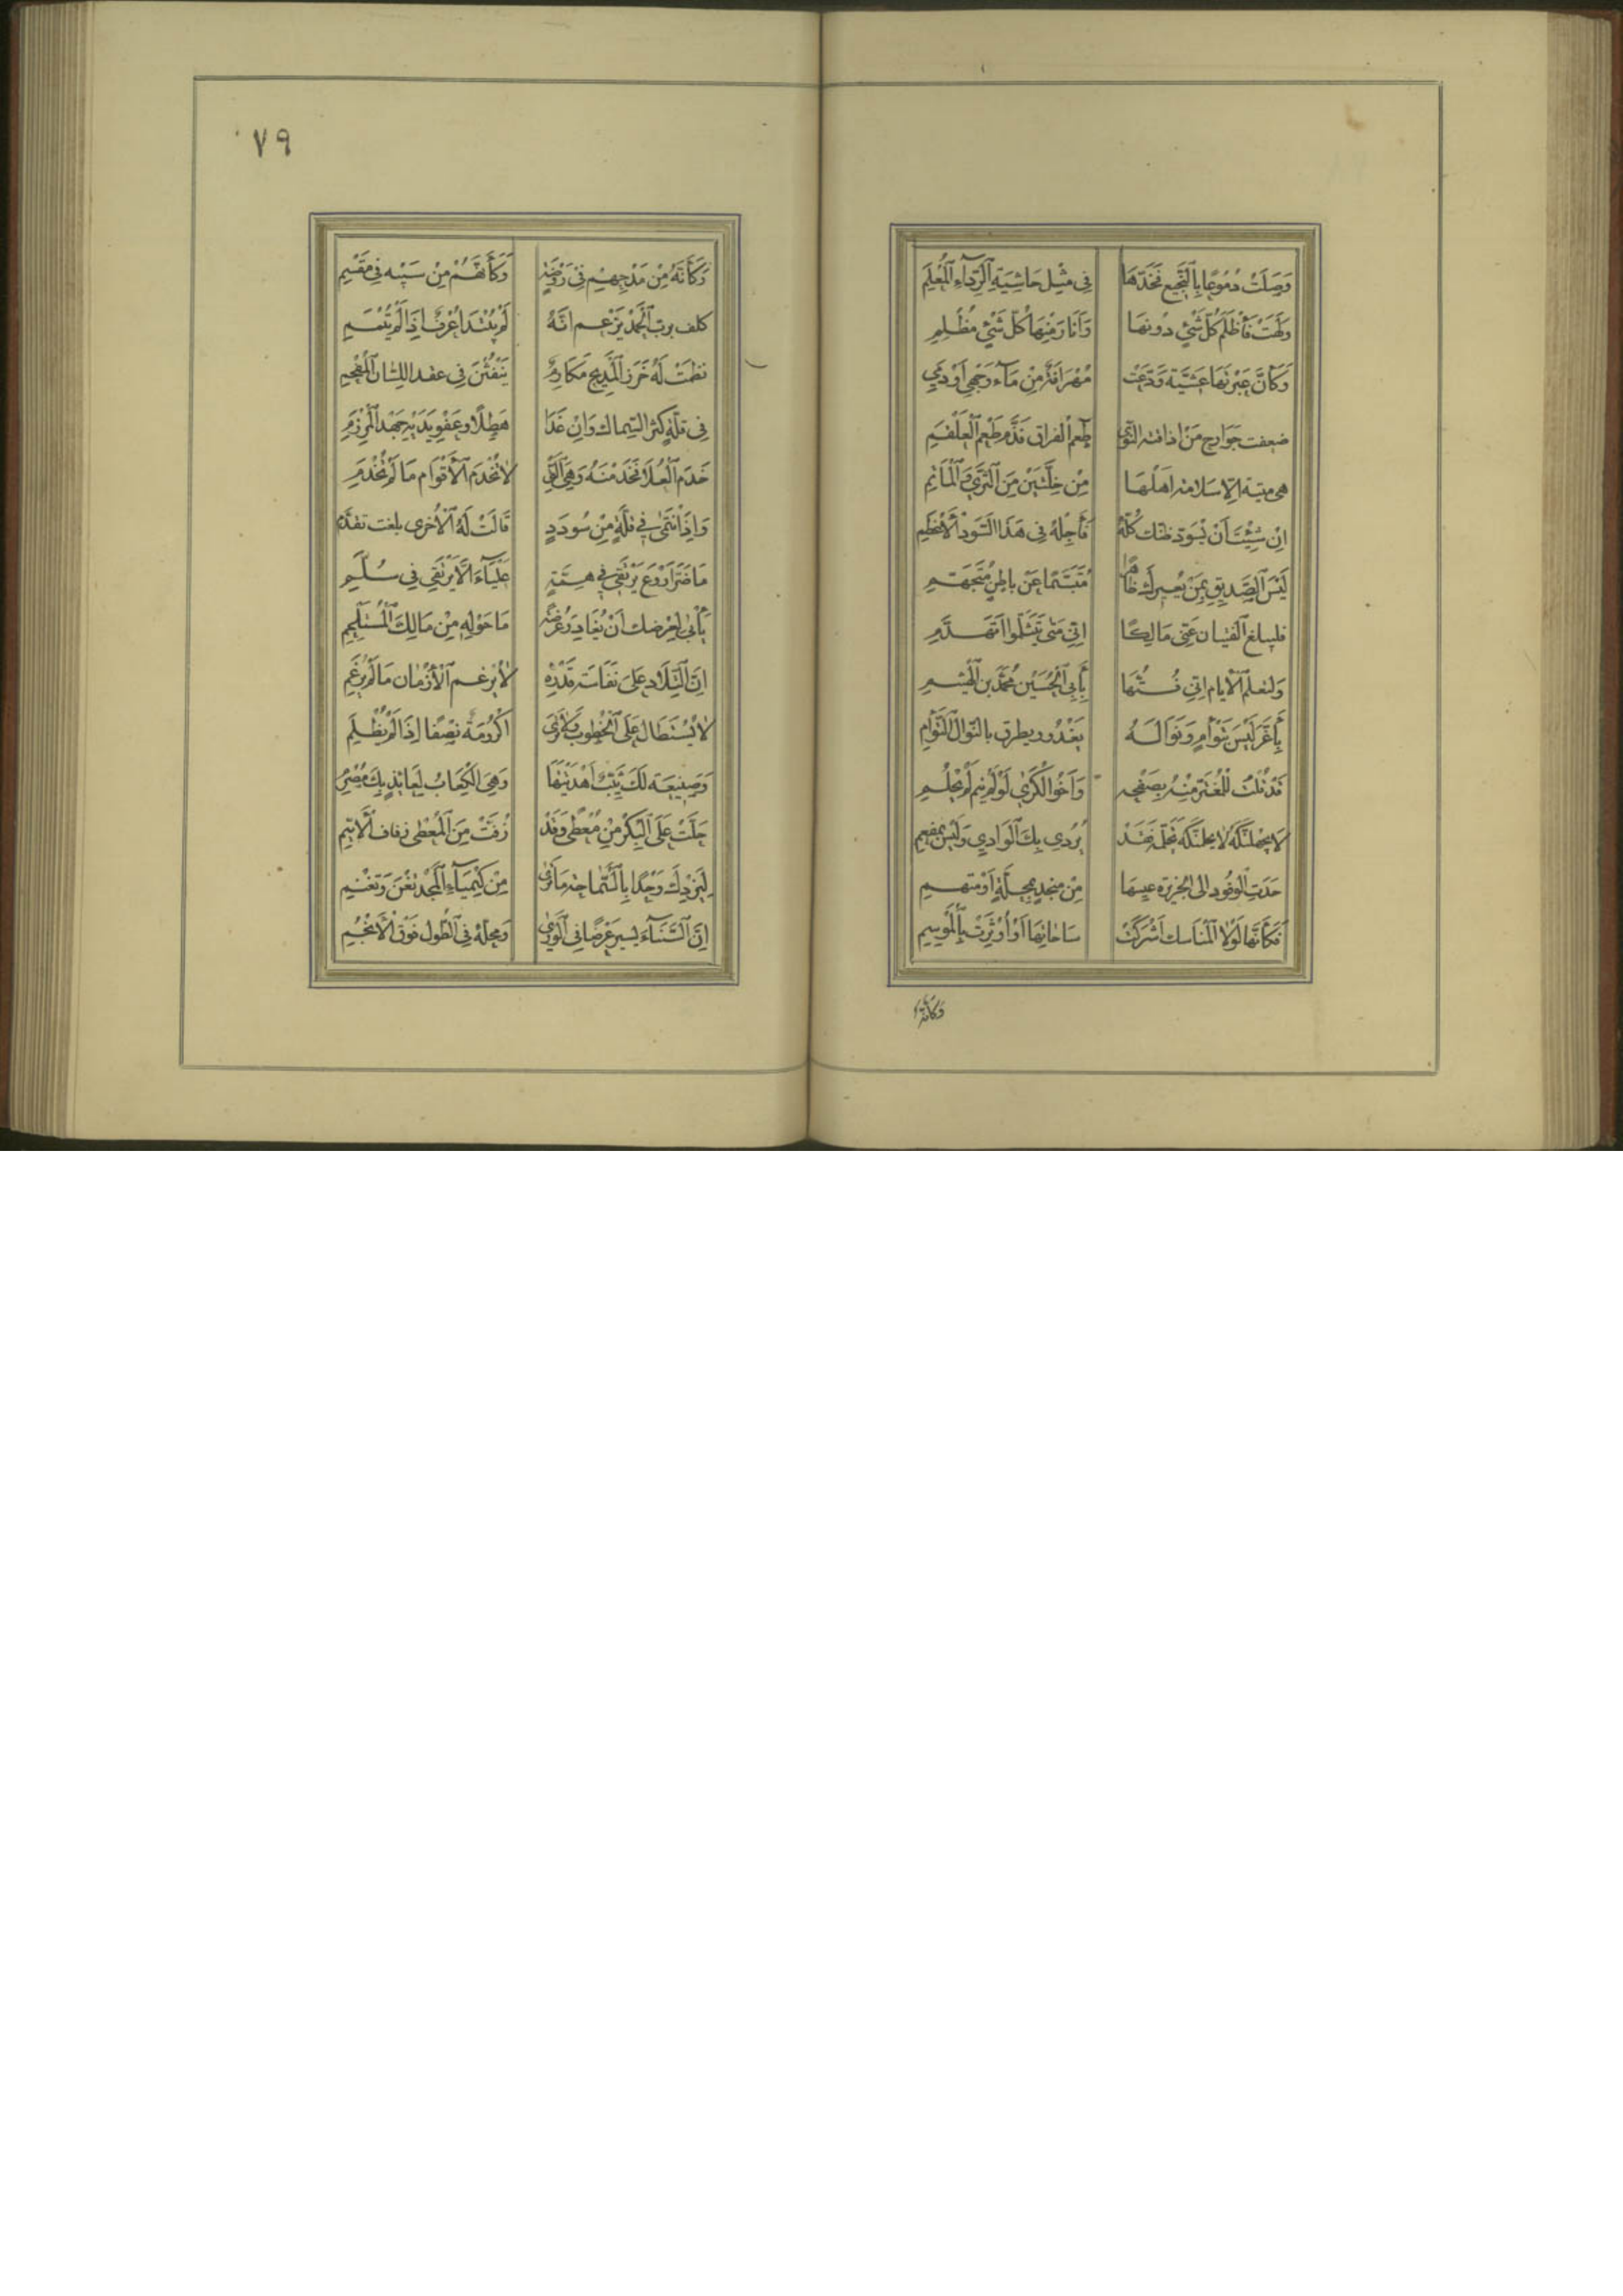 وَصَلَتْ دُمُوعًا بِالنَّجِيعِ فَخَدُّهَا فِى مِثْلِ حَاشِيَةِ الرِّدَاءِ الْمُعْلَمِ
وَلِهَتْ فَأَظْلَمَ كُلُّ شَيْءٍ دُونَهَا وَأَنَارَ مِنْهَا كُلُّ شَيْءٍ مُظْلِمِ
وَكَأَنَّ عَبْرَتَهَا عَشِيَّةَ وَدَّعَتْ مُهْرَاقَةٌ مِنْ مَاءِ وَجْهِي أَوْ دَمِي
ضعفت جَوَارِح مَنْ اذاقته النَّوَى طَعْم الفراق فَذَمَّ طَعْم الْعَلْقَمِ
هى ميتة الا سَلامة اَهْلهَا مِنْ خلّتَيْن مِنَ الثَّرَى وَالْمَأْتَمِ
اِنْ شِئْتَ أَنْ يَسْوَدَّ ظنّك كُلّهُ فَأَجِلْهُ فِى هَذَا السَّوَادِ الْأَعْظَمِ
لَيْسَ الصَّدِيق بِمَنْ يُعِيرك ظَاهِرًا مُتَبَسِّمًا عَنْ باطِنٍ مُتَجَهِّمِ
فليبلغ الفتيان عَنِّى مَالِكًا اِنِّى مَتَى يَتَثَلَّمُوا اَتَهَدَّمِ
وَلتعلم الْأيام اِنِّى فُتُّهَا بِأَبِى الْحُسَيْن مُحَمَّد بن الْهَيْثَمِ
بِأَغَرَّ لَيْسَ بِتَوْأَمٍ وَنَوَالُهُ يَغْدُو ويطرق بالنَّوَال التَّوْأَمِ
قَدْ قُلْتُ لِلْمُغْتَرِّ مِنْهُ بِصَفْحِهِ وَأَخُو الْكَرَى لَوْ لَمْ يَنَمْ لَمْ يَحْلُمِ
لا يُلْحِمَنَّكَ يُرْدِى بِكَ الْوَادِى وَلَيْسَ بِمُفْعَمِ
حَدَتِ الْوُفُود الى الجزيرة عِيسَهَا مِنْ منجد بِمحلّةٍ اَوْ متهمِ
فَكَأَنَّهَا لَوْلَا الْمَنَاسك اَشْرَكَتْ سَاحَاتِهَا اَوْ اُوثِرَتْ بِالْمَوْسِمِ
وَكَأَنَّهُ
٧٩
وَكَأَنَّهُ مِنْ مَدْحِهِمْ فِى رَوْضَةٍ وَكَأَنَّهُمْ مِنْ سَيْبِهِ فِى مَقْسَمِ
كلف برب الْحَمْد يَزْعم اَنَّهُ لَمْ يُبْتَدَأ عُرْفٌ اِذَا لَمْ يُتْمَمِ
نظمَتْ لَهُ خَرَز الْمَدِيح مَكَارِمٌ يَنْفُثْنَ فِى عقد اللِّسَان الْمُفْحَمِ
فِى قلة كثر السِّماك وَاِنْ غَدَا هَطِلًا وعَفْو يَدَيْهِ جَهْد الْمُرْزِمِ
خَدَمَ الْعُلَا فَخَدَمْنَهُ وَهِيَ الَّتِى لَا تَخْدُم الْأَقْوَامَ مَا لَمْ تُخْدَمِ
وَاِذَا انْتَمَى فِى قُلَّةٍ مِنْ سُودَدٍ قَالَتْ لَهُ الْأُخْرى بلغت تقدَّمِ
مَا ضَرَّ أَرْوَعَ يَرْتَقِى فِى هِمَّةٍ عَلْيَاءَ اَلَّا يَرْتَقِى فِى سُلَّمِ
يَأْبَى لِعِرْضِك أَنْ يُغَادَرَ عُرْضَةً مَا حَوْلَهِ مِنْ مَالِكَ الْمُسْتَلْحَمِ
اِنَّ التِّلَادَ عَلَى نَفَاسَةِ قَدْرِهِ لَا يرغم الْأَزْمَان مَا لَمْ يُرْغَمِ
لَا يُسْتَطَال عَلَى الْخُطُوب وَلَا تُرَى اُكْرُومَة نِصْفًا اِذَا لَمْ يُظْلَمِ
وَصَنِيعَة لَكَ ثَيِّب اَهْدَيْتَهَا وَهِىَ الْكَعَابُ لِعَائِذٍ بِكَ مُصْرِمِ
حَلَّتْ مَحَلَّ الْبِكْر مِنْ مُعْطًى وَقَدْ زُفَّتْ مِنَ الْمُعْطِى زفاف الْأَيِّمِ
لِيَزِدْكَ وَجْدًا بِالسَّمَاحَة مَا تَرَى مِنْ كِيمْيَاءِ الْمَجْدِ تَغْنَ وَتَغْنَمِ
اِنَّ الثَّنَاءَ يَسِير عَرْضًا فِى الْوَرَى وَمحلّهُ فِى الطُّول فَوْقَ الْأَنْجُمِ